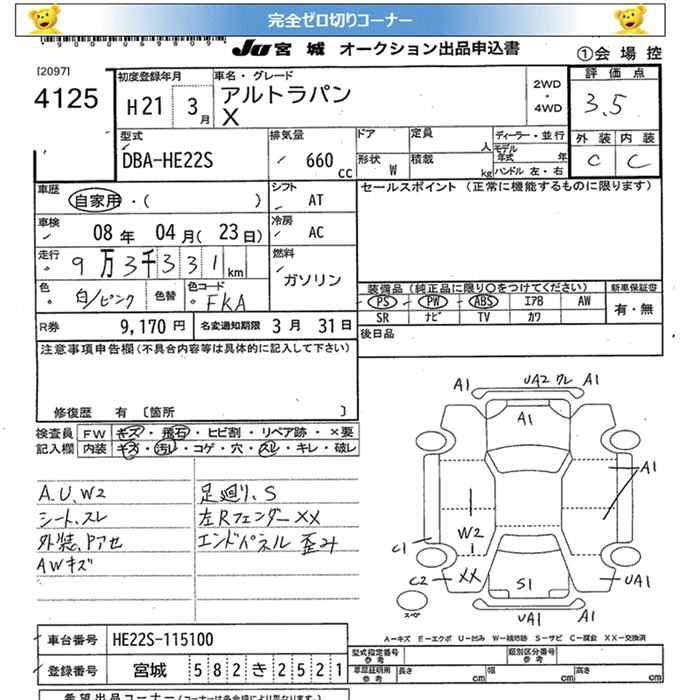 完全ゼロ切りコーナー
JU宮城 オークション出品申込書 ①会場控
[2097] 初度登録年月 車名・グレード 2WD ・ 4WD 評価点
4125 H21 3月 アルトラパン X 3.5
外装 内装
C C
型式 排気量 ドア 定員 人 ディーラー・並行
DBA-HE22S 660 CC 形状 W 積載 kg モデル年式 年 ハンドル 左・右
車歴 自家用・( ) シフト AT セールスポイント (正常に機能するものに限ります)
車検 08年 04月(23日) 冷房 AC
走行 9万3千331km 燃料 ガソリン
色 白/ピンク 色替 色コード FKA
装備品(純正品に限り○をつけてください) 新車保証書
PS PW ABS エアB AW 有・無
SR ナビ TV カワ
R券 9,170円 名変通知期限 3月 31日
後日品
注意事項申告欄(不具合内容等は具体的に記入して下さい)
修復歴 有 〔箇所 〕
検査員 FW キズ・飛石・ヒビ割・リペア跡・×要
記入欄 内装 キズ・汚レ・コゲ・穴・スレ・キレ・破レ
A.U.W2 足廻り.S
シート.スレ 左Rフェンダー XX
外装.Pアセ エンドパネル 歪み
AWキズ
A1 UA2 ワレ A1
A1
A1
W2
C1
C2 XX S1 UA1
スペア
UA1 A1
A-キズ E-エクボ U-凹み W-補修跡 S-サビ C-腐食 XX-交換済
車台番号 HE22S-115100
登録番号 宮城 582き2521
型式指定番号 参考 類別区分番号 参考
車庫証明用 参考 長さ cm 幅 cm 高さ cm
希望出品コーナー